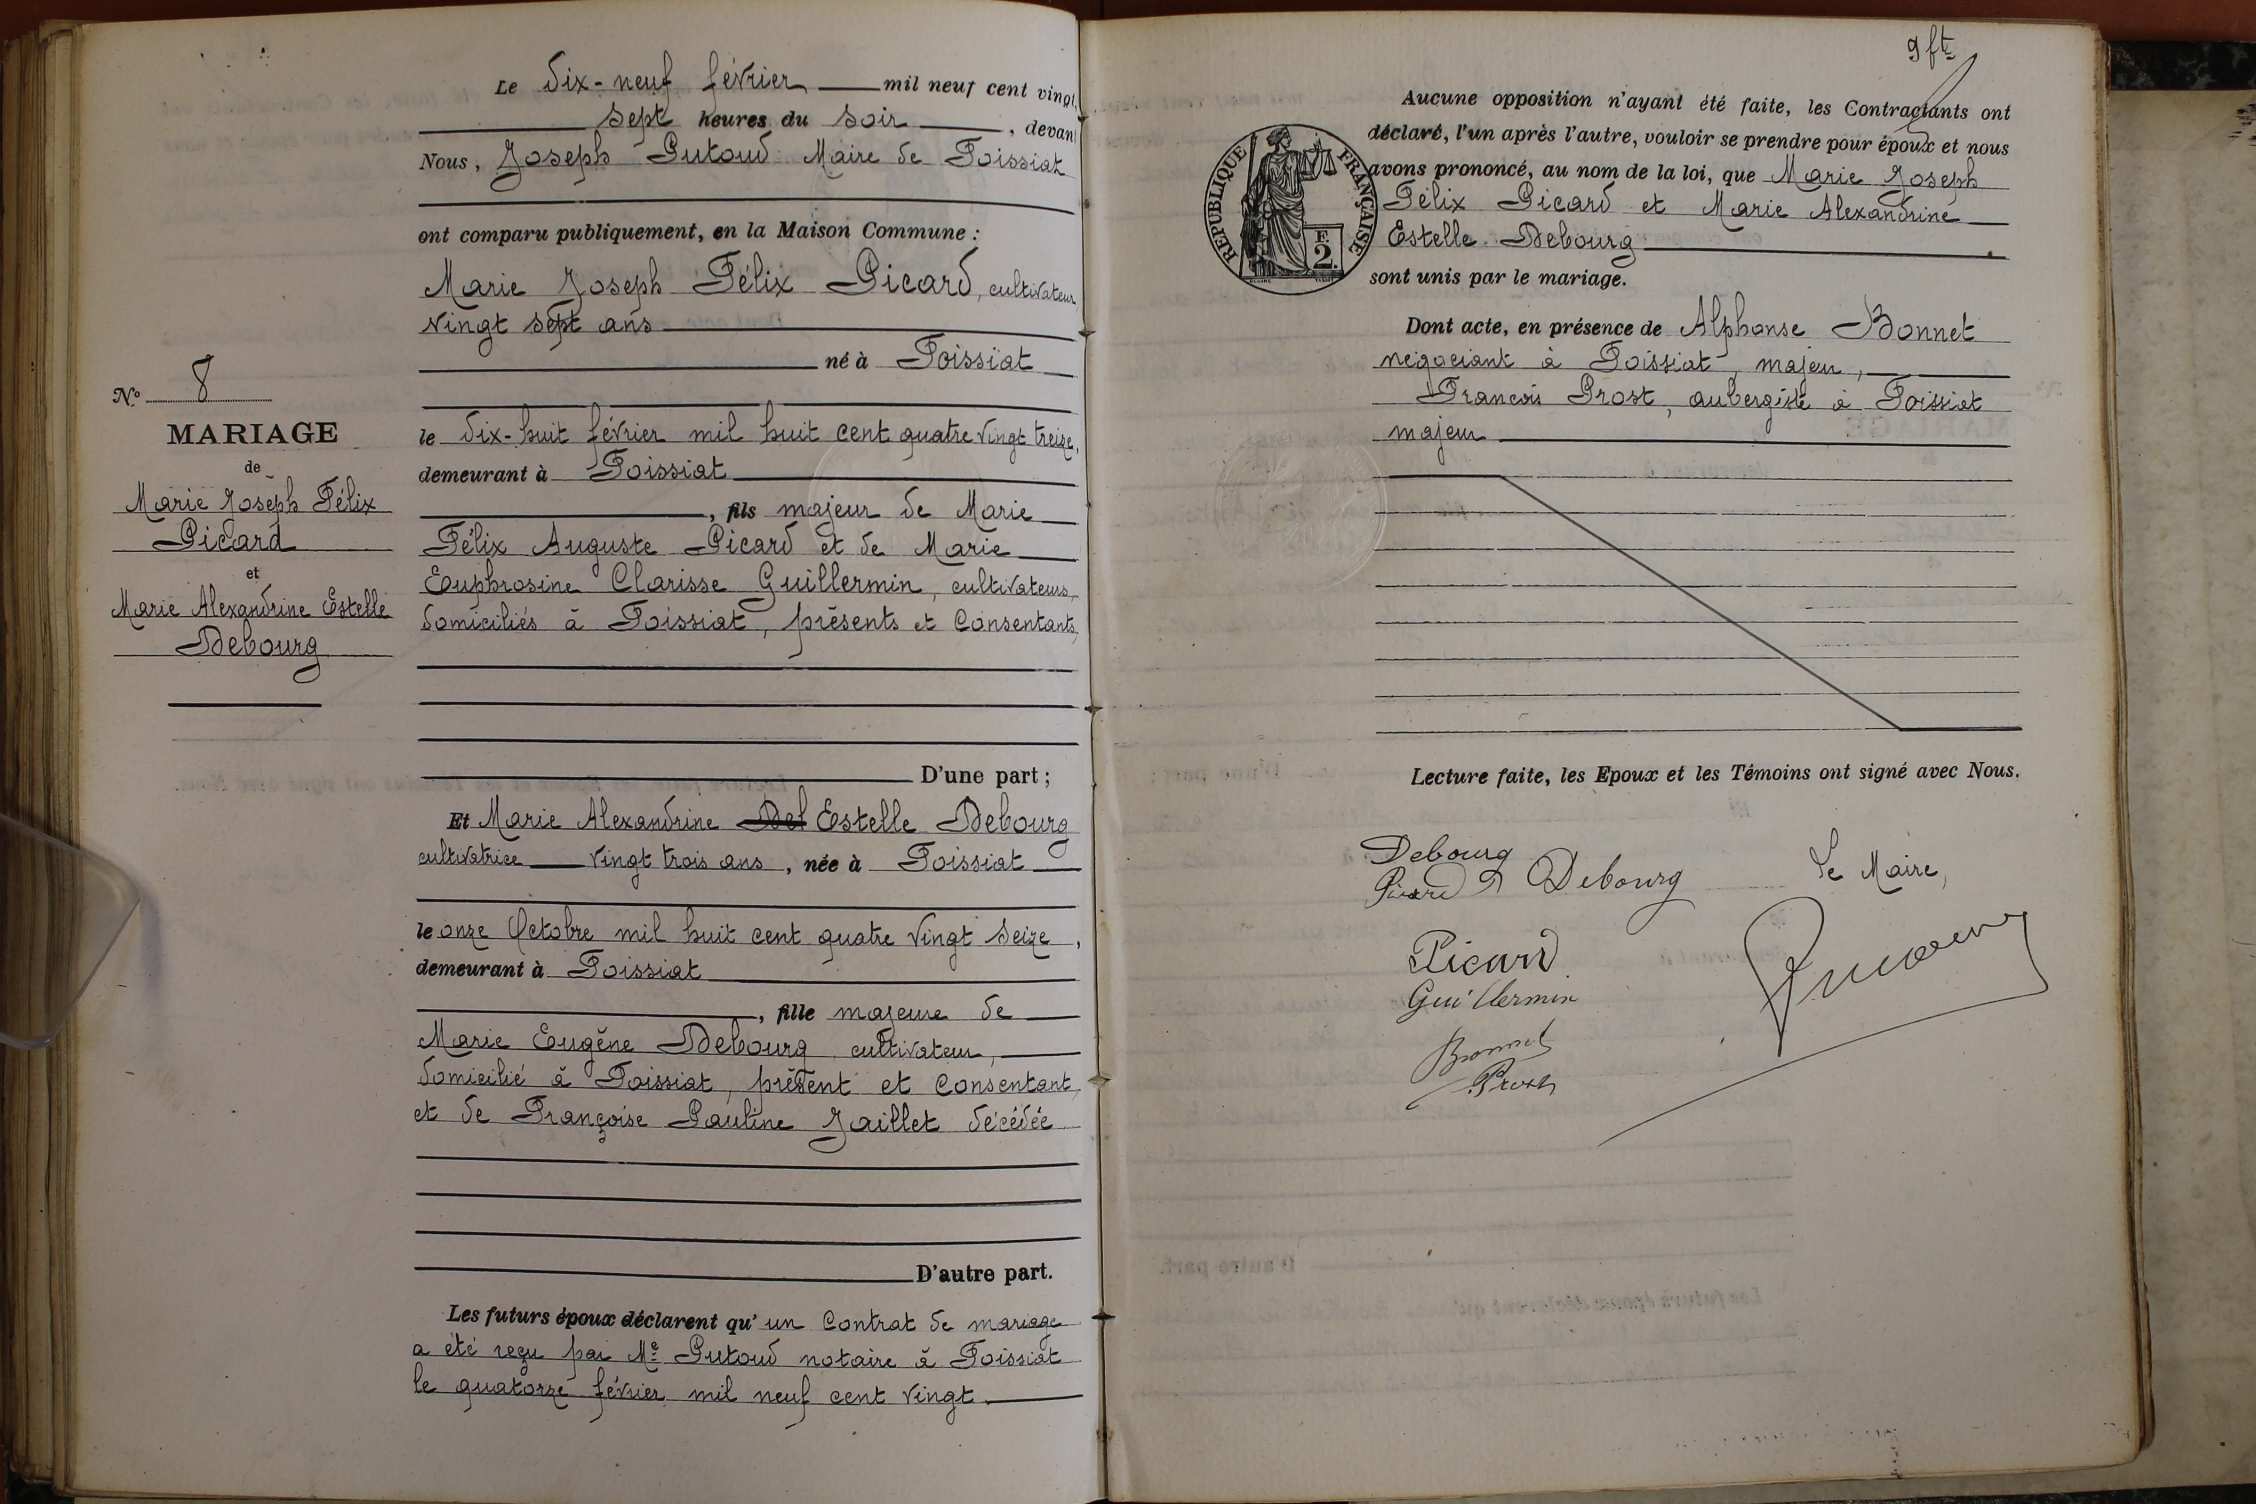 Le dix-neuf février mil neuf cent vingt,
sept heures du soir, devant
Nous, Joseph Putoud Maire de Foissiat
ont comparu publiquement, en la Maison Commune :
Marie Joseph Félix Picard, cultivateur
vingt sept ans
né à Foissiat
le dix-huit février mil huit cent quatre vingt treize,
demeurant à Foissiat
, fils majeur de Marie
Félix Auguste Picard et de Marie
Euphrosine Clarisse Guillermin, cultivateurs,
domiciliés à Foissiat, présents et consentants,
D'une part ;
Et Marie Alexandrine Del Estelle Debourg
cultivatrice vingt trois ans, née à Foissiat
le onze Octobre mil huit cent quatre vingt seize,
demeurant à Foissiat
, fille majeure de
Marie Eugène Debourg cultivateur,
domicilié à Foissiat, présent et consentant,
et de Françoise Pauline Jaillet décédée
D'autre part.
Les futurs époux déclarent qu'un contrat de mariage
a été reçu par Me Putoud notaire à Foissiat
le quatorze février mil neuf cent vingt
No 8
MARIAGE
de
Marie Joseph Félix
Picard
et
Marie Alexandrine Estelle
Debourg
9 ft
REPUBLIQUE FRANÇAISE
F.
2.
Aucune opposition n'ayant été faite, les Contractants ont
déclaré, l'un après l'autre, vouloir se prendre pour époux et nous
avons prononcé, au nom de la loi, que Marie Joseph
Félix Picard et Marie Alexandrine
Estelle Debourg
sont unis par le mariage.
Dont acte, en présence de Alphonse Bonnet
négociant à Foissiat, majeur,
François Prost, aubergiste à Foissiat
majeur
Lecture faite, les Epoux et les Témoins ont signé avec Nous.
Debourg
Picard Debourg
Le Maire,
Picard
Guillermin
Bonnet
Prost